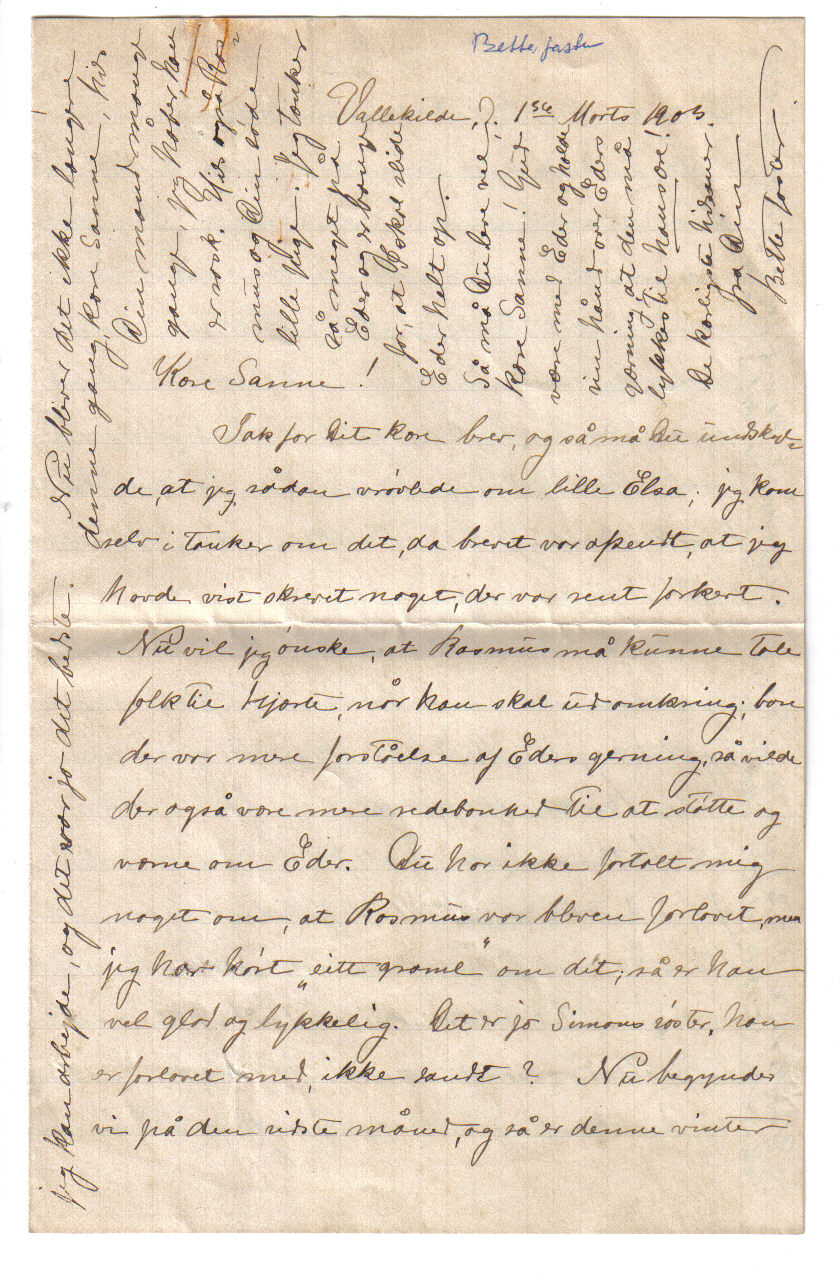 Bette faster
Vallekilde, d. 1ste Marts 1903.
Kære Sanne!
Tak for Dit kære brev, og så må Du undskyl=
de, at jeg sådan vrøvlede om lille Elsa; jeg kom
selv i tanker om det, da brevet var afsendt, at jeg
havde vist skrevet noget, der var rent forkert.
Nu vil jeg ønske, at Rasmus må kunne tale
folk til hjærte, når han skal ud omkring; bare
der var mere forståelse af Eders gerning, så vilde
der også være mere redebonhed til at støtte og
værne om Eder. Du har ikke fortalt mig
noget om, at Rasmus var bleven forlovet, men
jeg har hørt „eitt graml“ om det; så er han
vel glad og lykkelig. Det er jo Simons søster, han
er forlovet med, ikke sandt? Nu begynder
vi på den sidste måned, og så er denne vinter
jeg kan arbejde, og det er jo det bedste.
Nu bliver det ikke længere
denne gang, kære Sanne, hils
Din mand mange
gange, jeg håber, han
er rask. Hils også Ras=
mus og Din søde
lille pige. Jeg tænker
så meget på
Eder og er bange
for, at I skal slide
Eder helt op.
Så må Du leve vel,
kære Sanne! Gud
være med Eder og holde
sin hånd over Eders
gerning, at den må
lykkes til hans ære!
De kærligste hilsener
fra Din
Bette faster